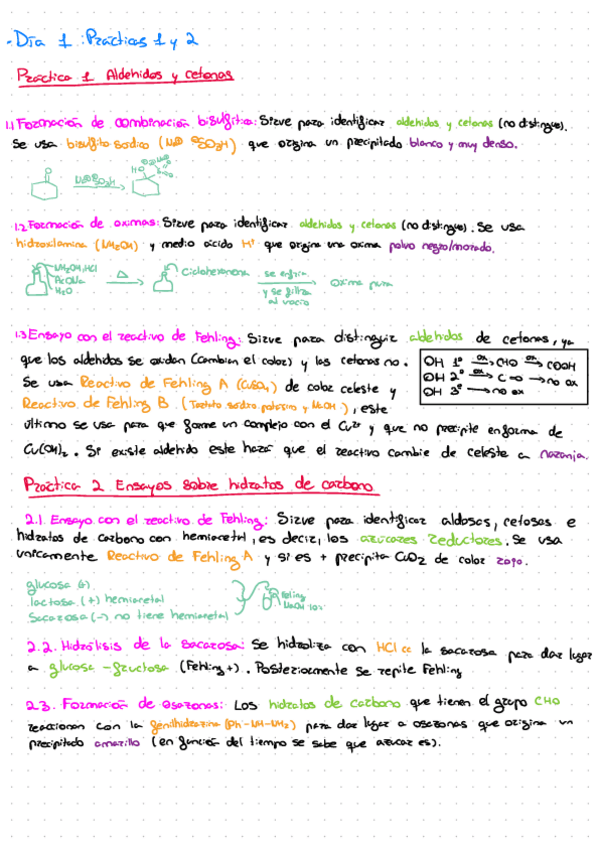 -Día 1 : Prácticas 1 y 2
Práctica 1 Aldehidos y cetonas
1.1 Formación de combinación bisulfítica: Sirve para identificar aldehidos y cetonas (no distingue).
Se usa bisulfito sodico que origina un precipitado blanco y muy denso.
O
HO
1.2 Formación de oximas: Sirve para identificar aldehidos y cetonas (no distingue). Se usa
hidroxilamina (NH2OH) y medio acido H+ que origina una oxima polvo negro/morado.
NH2OH.HCl
AcONa
H2O
Δ
Ciclohexanona
se enfria
y se filtra
al vacio
Oxima pura
1.3 Ensayo con el reactivo de Fehling: Sirve para distinguir aldehidos de cetonas, ya
que los aldehidos se oxidan (cambian el color) y las cetonas no.
OH 1º ox→ CHO ox→ COOH
OH 2º ox→ C=O → no ox
OH 3º → no ox
Se usa Reactivo de Fehling A (CuSO4) de color celeste y
Reactivo de Fehling B (Tartrato sodico potasico y NaOH), este
último se usa para que forme un complejo con el Cu2+ y que no precipite en forma de
Cu(OH)2. Si existe aldehido este hará que el reactivo cambie de celeste a naranja.
Práctica 2 Ensayos sobre hidratos de carbono
2.1. Ensayo con el reactivo de Fehling: Sirve para identificar aldosas, cetosas e
hidratos de carbono con hemiacetal, es decir, los azúcares reductores. Se usa
unicamente Reactivo de Fehling A y si es + precipita CuO2 de color rojo.
glucosa (+)
lactosa (+) hemiacetal
Sacarosa (-) no tiene hemiacetal
Feling
NaOH 10%
2.2. Hidrólisis de la sacarosa: Se hidroliza con HCl cc la sacarosa para dar lugar
a glucosa - fructosa (Fehling +). Posteriormente se repite Fehling
2.3. Formación de osazonas: Los hidratos de carbono que tienen el grupo CHO
reaccionan con la fenilhidrazina (Ph-NH-NH2) para dar lugar a osazonas que origina un
precipitado amarillo (en función del tiempo se sabe que azucar es).